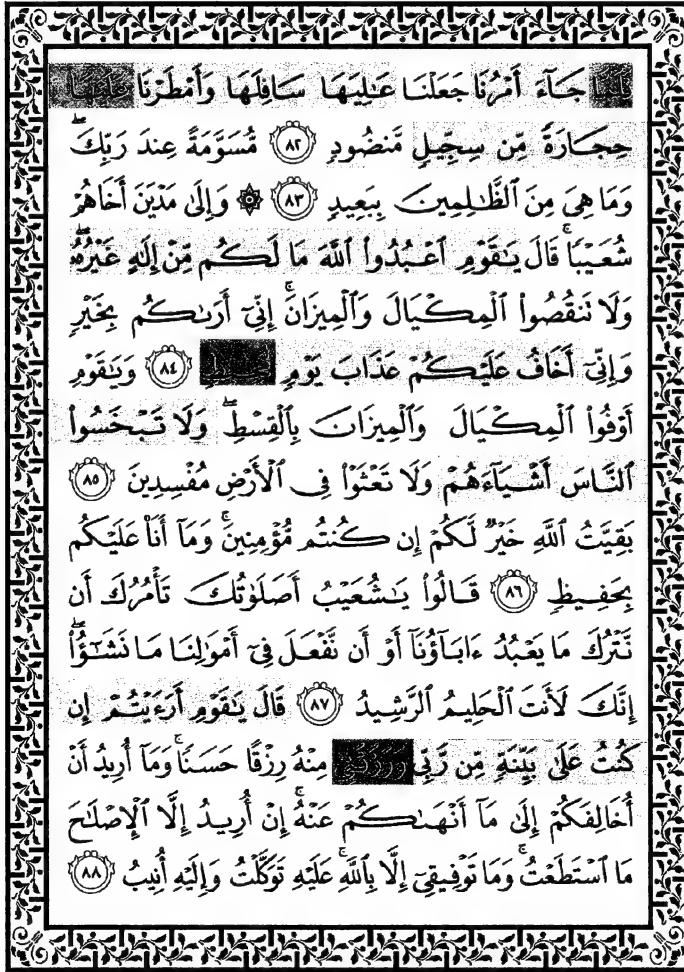 فَلَمَّا جَآءَ أَمْرُنَا جَعَلْنَا عَٰلِيَهَا سَافِلَهَا وَأَمْطَرْنَا عَلَيْهَا
حِجَارَةً مِّن سِجِّيلٍ مَّنضُودٍ ٨٢ مُّسَوَّمَةً عِندَ رَبِّكَۖ
وَمَا هِىَ مِنَ ٱلظَّٰلِمِينَ بِبَعِيدٍ ٨٣ ۞ وَإِلَىٰ مَدْيَنَ أَخَاهُمْ
شُعَيْبًاۚ قَالَ يَٰقَوْمِ ٱعْبُدُوا۟ ٱللَّهَ مَا لَكُم مِّنْ إِلَٰهٍ غَيْرُهُۥۖ
وَلَا تَنقُصُوا۟ ٱلْمِكْيَالَ وَٱلْمِيزَانَۚ إِنِّىٓ أَرَىٰكُم بِخَيْرٍ
وَإِنِّىٓ أَخَافُ عَلَيْكُمْ عَذَابَ يَوْمٍ مُّحِيطٍ ٨٤ وَيَٰقَوْمِ
أَوْفُوا۟ ٱلْمِكْيَالَ وَٱلْمِيزَانَ بِٱلْقِسْطِۖ وَلَا تَبْخَسُوا۟
ٱلنَّاسَ أَشْيَآءَهُمْ وَلَا تَعْثَوْا۟ فِى ٱلْأَرْضِ مُفْسِدِينَ ٨٥
بَقِيَّتُ ٱللَّهِ خَيْرٌ لَّكُمْ إِن كُنتُم مُّؤْمِنِينَۚ وَمَآ أَنَا۠ عَلَيْكُم
بِحَفِيظٍ ٨٦ قَالُوا۟ يَٰشُعَيْبُ أَصَلَوٰتُكَ تَأْمُرُكَ أَن
نَّتْرُكَ مَا يَعْبُدُ ءَابَآؤُنَآ أَوْ أَن نَّفْعَلَ فِىٓ أَمْوَٰلِنَا مَا نَشَٰٓؤُا۟ۖ
إِنَّكَ لَأَنتَ ٱلْحَلِيمُ ٱلرَّشِيدُ ٨٧ قَالَ يَٰقَوْمِ أَرَءَيْتُمْ إِن
كُنتُ عَلَىٰ بَيِّنَةٍ مِّن رَّبِّى وَرَزَقَنِى مِنْهُ رِزْقًا حَسَنًاۚ وَمَآ أُرِيدُ أَنْ
أُخَالِفَكُمْ إِلَىٰ مَآ أَنْهَىٰكُمْ عَنْهُۚ إِنْ أُرِيدُ إِلَّا ٱلْإِصْلَٰحَ
مَا ٱسْتَطَعْتُۚ وَمَا تَوْفِيقِىٓ إِلَّا بِٱللَّهِۚ عَلَيْهِ تَوَكَّلْتُ وَإِلَيْهِ أُنِيبُ ٨٨